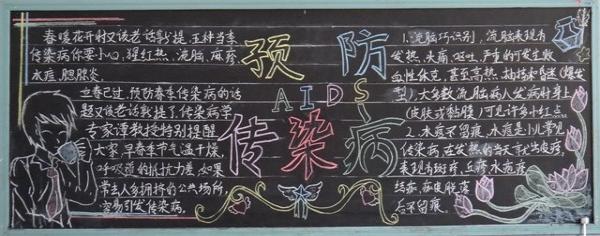 春暖花开时又该老话新提,五种当季
传染病你要小心,猩红热、流脑、麻疹
水痘、腮腺炎.
立春已过,预防春季传染病的话
题又该老话新提了,传染病学
专家谭教授特别提醒
大家,早春季节气温干燥,
呼吸道的抵抗力差,如果
常去人多拥挤的公共场所,
容易引发传染病.
预防
AIDS
传染病
1.流脑巧识别,流脑表现有
发热、头痛、呕吐,严重的可发生败
血性休克、甚至高热、抽搐、昏迷(爆发
型),大多数流脑病人发病时身上
(皮肤或黏膜)可见许多小红点
2.水痘不留痕,水痘是小儿常见
传染病,在发热的当天就出皮疹,
表现有斑疹、丘疹、水疱疹
结痂,痂皮脱落
后不留痕.